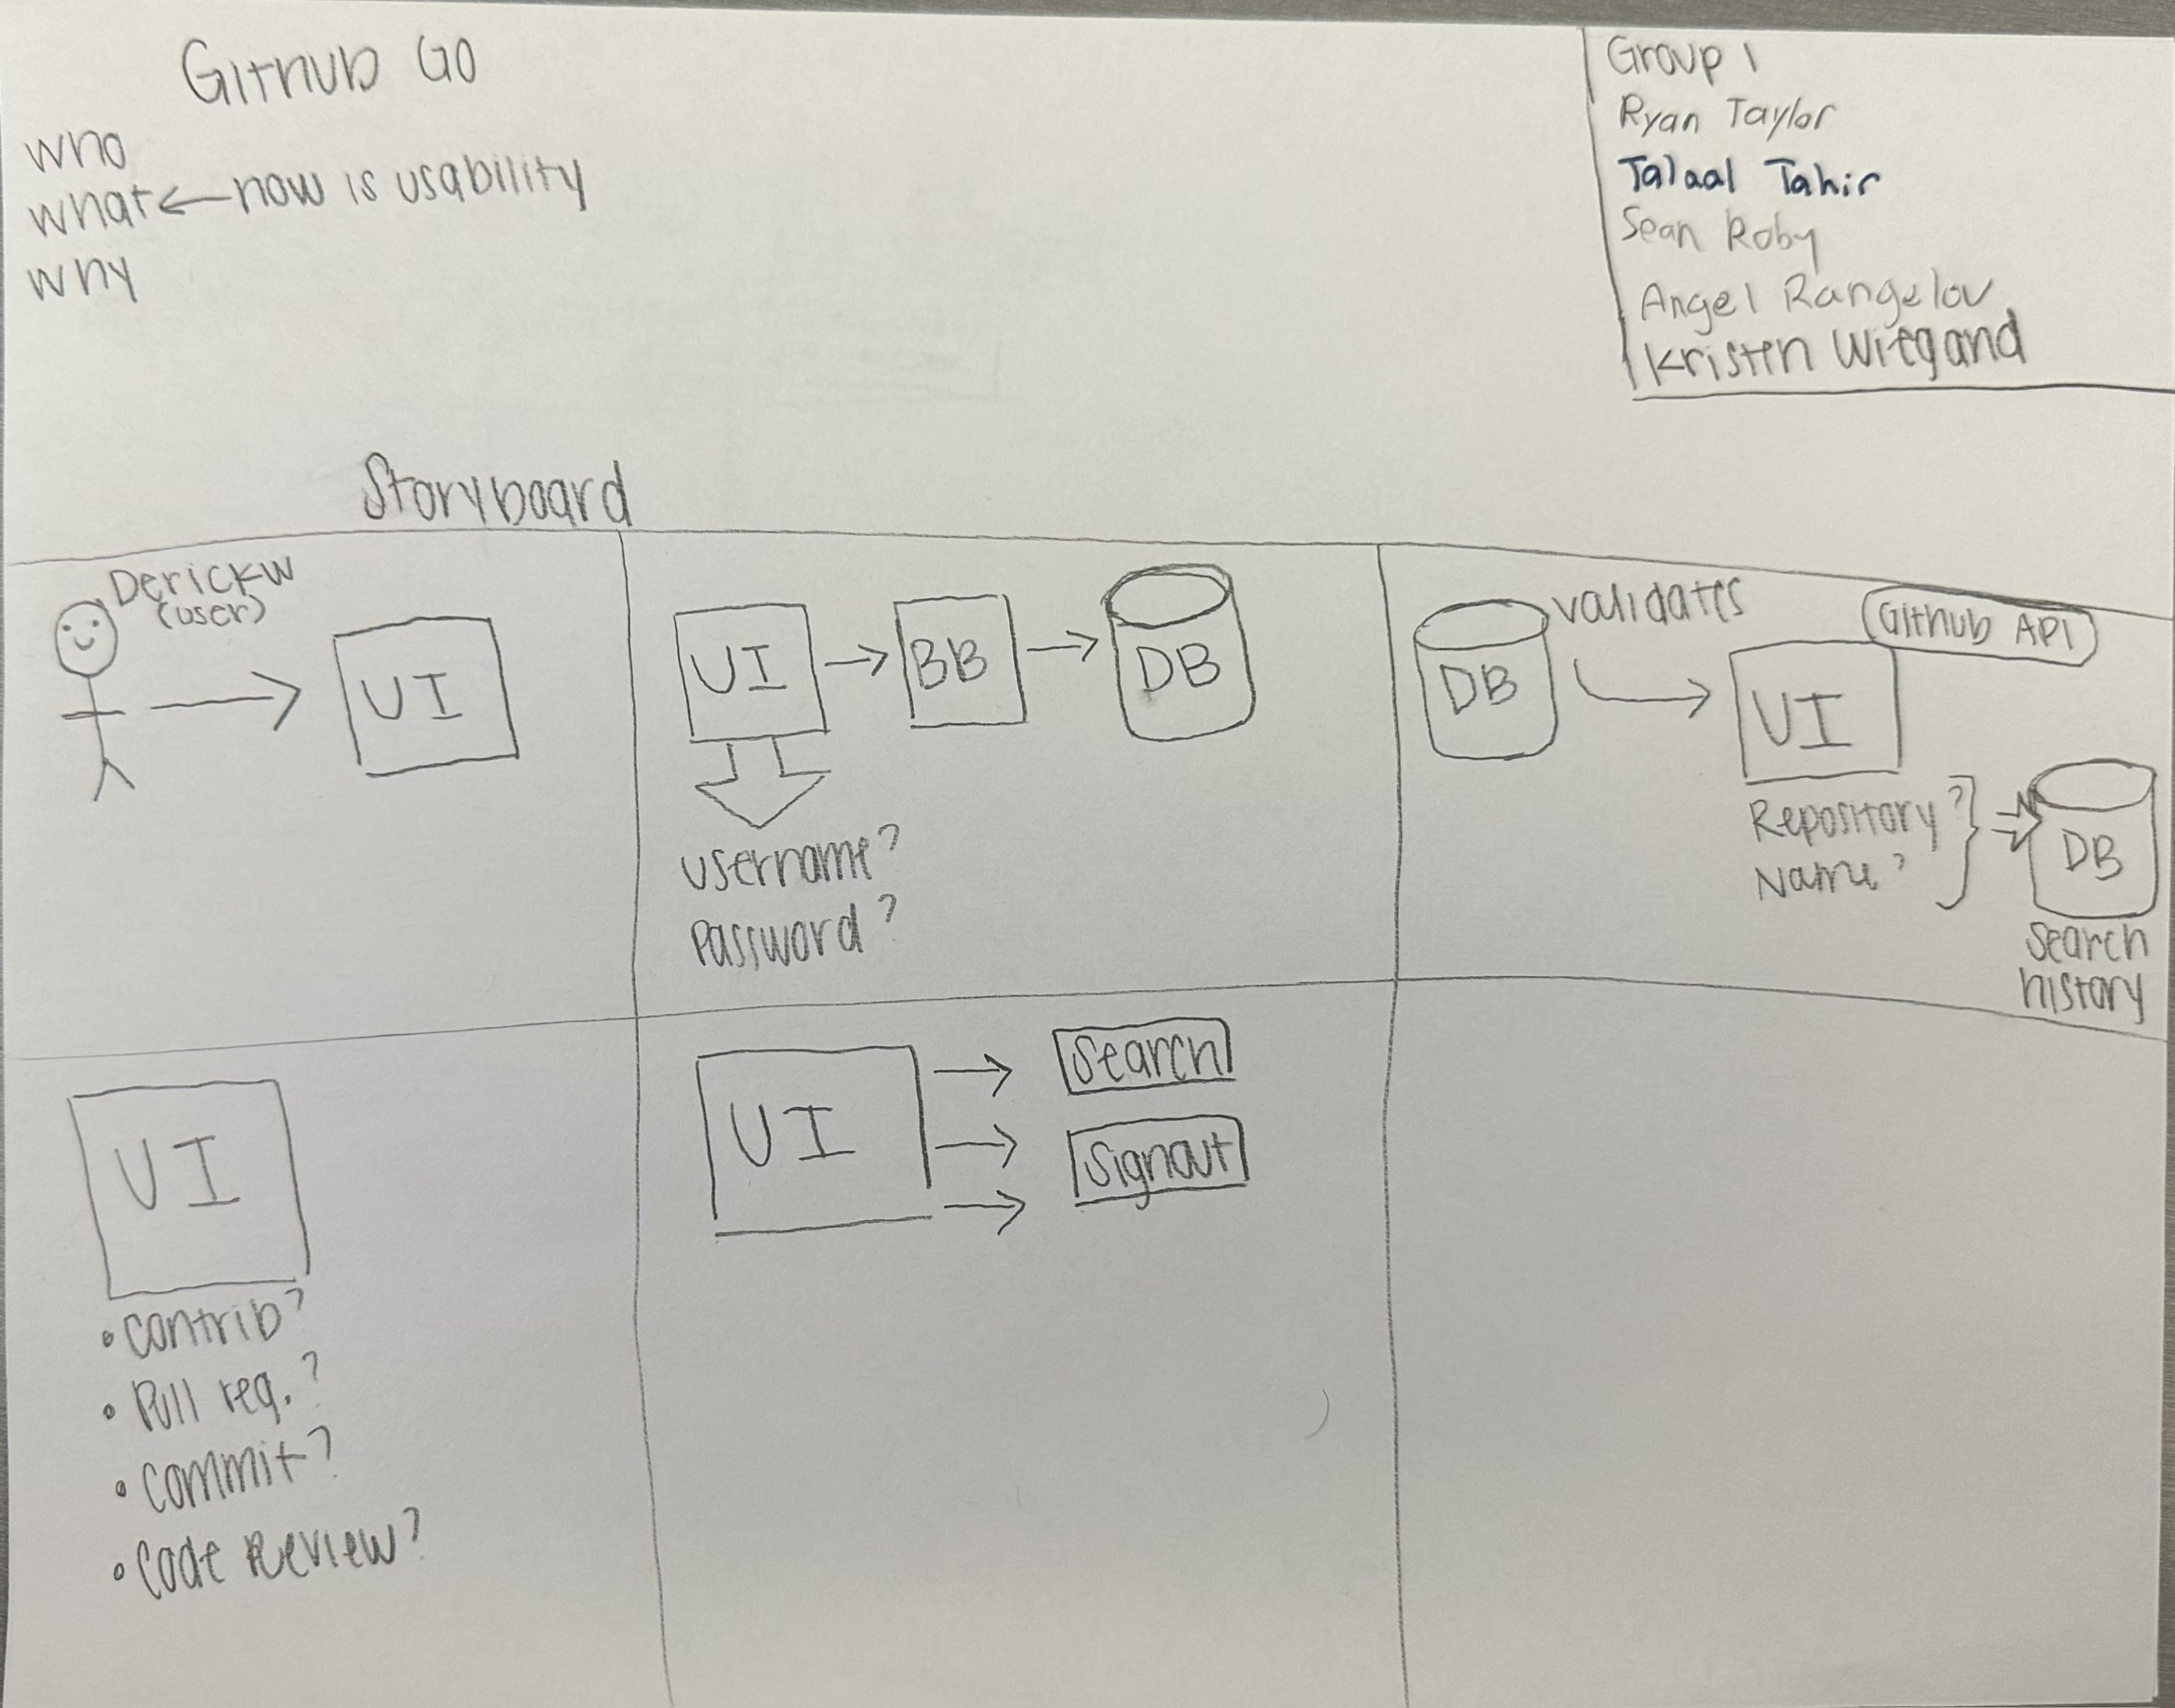 Github Go
who
what ← how is usability
why
Group 1
Ryan Taylor
Talaal Tahir
Sean Roby
Angel Rangelov
Kristen Wiegand
Storyboard
DerickW
(user)
UI
UI → BB → DB
username?
Password?
DB
validates
Github API
UI
Repository?
Name?
DB
search
history
UI
• contrib?
• Pull req.?
• commit?
• Code Review?
UI
Search
Signout